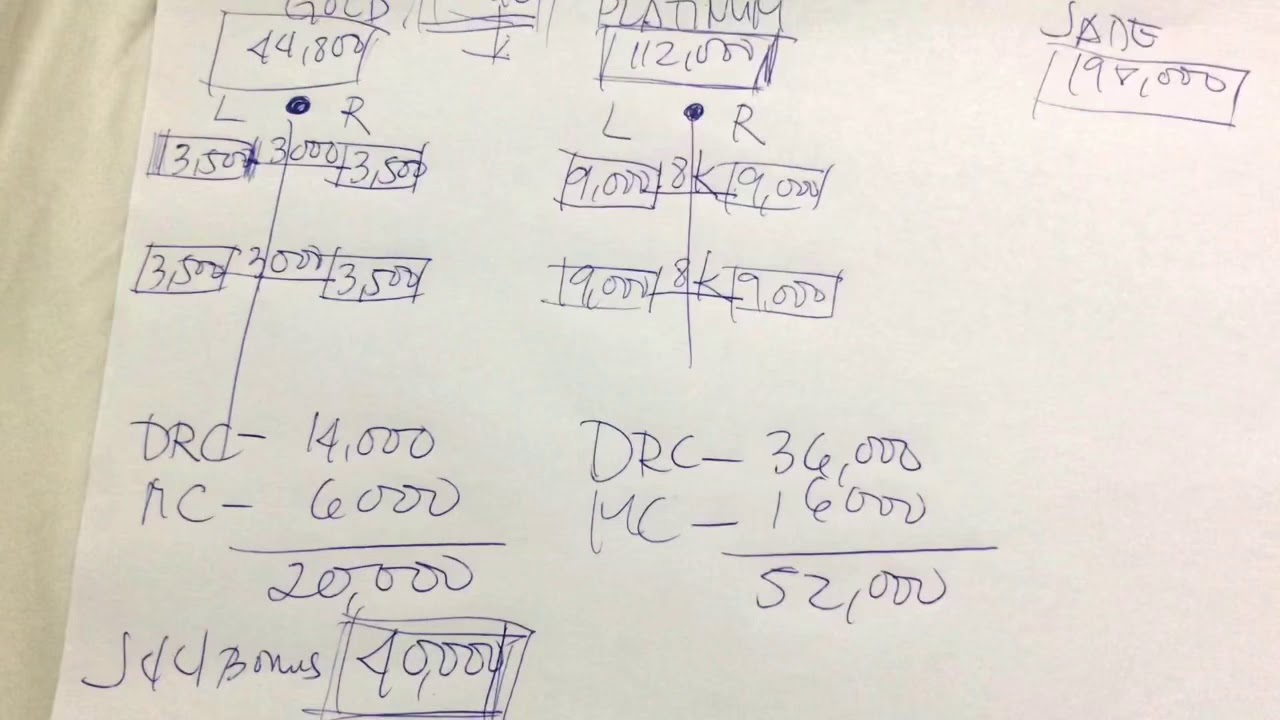 GOLD PLATINUM JADE
44,800 112,000 198,000
L R L R
3,500 3000 3,500 9,000 8k 9,000
3,500 3000 3,500 9,000 8k 9,000
DRC- 14,000 DRC- 36,000
MC- 6000 MC- 16000
20,000 52,000
Bonus 40,000